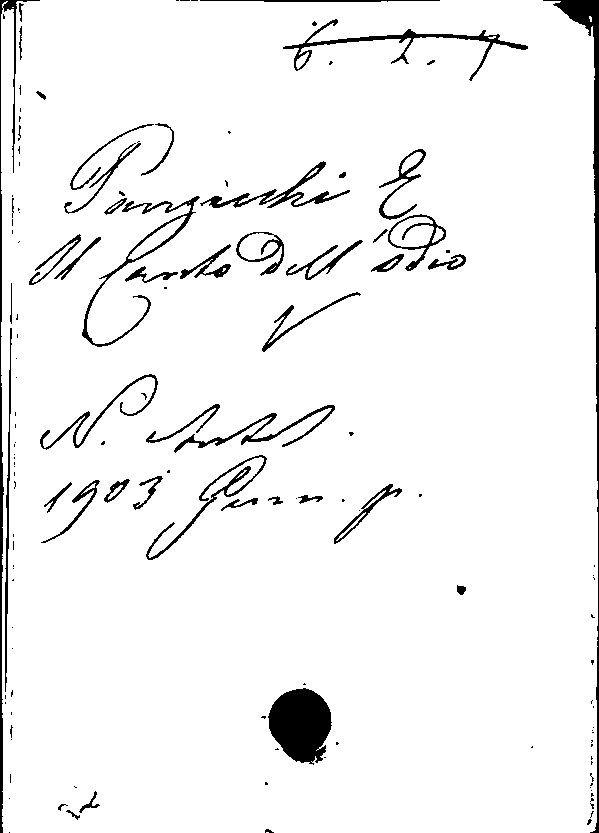 6. 2. 7
Panzacchi E
Il Canto dell'odio
V
N. Antol.
1903 Genn. p.